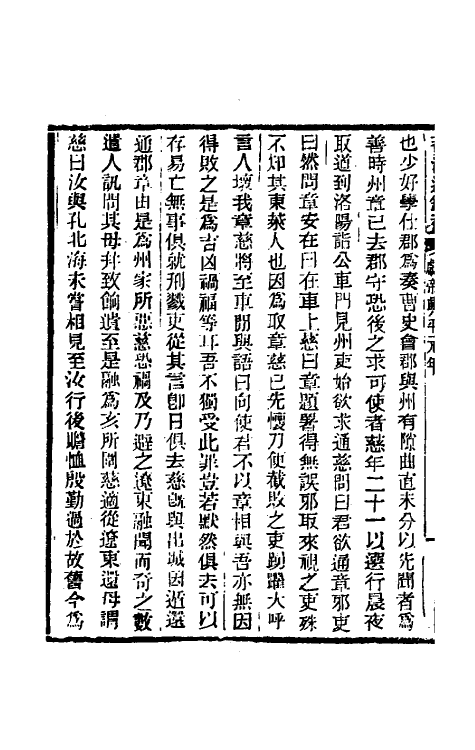 也少好學仕郡爲奏曹史會郡與州有隙曲直未分以先聞者爲
善時州章已去郡守恐後之求可使者慈年二十一以選行晨夜
取道到洛陽詣公車門見州吏始欲求通慈問曰君欲通章邪吏
曰然問章安在曰在車上慈曰章題署得無誤邪取來視之吏殊
不知其東萊人也因爲取章慈已先懷刀便截敗之吏踴躍大呼
言人壞我章慈將至車間與語曰向使君不以章相與吾亦無因
得敗之是爲吉凶禍福等耳吾不獨受此罪豈若默然俱去可以
存易亡無事俱就刑戮吏從其言卽日俱去慈旣與出城因遁還
通郡章由是爲州家所惡慈恐禍及乃避之遼東融聞而奇之數
遣人訊問其母幷致餉遺至是融爲亥所圍慈適從遼東還母謂
慈曰汝與孔北海未嘗相見至汝行後贍恤殷勤過於故舊今爲